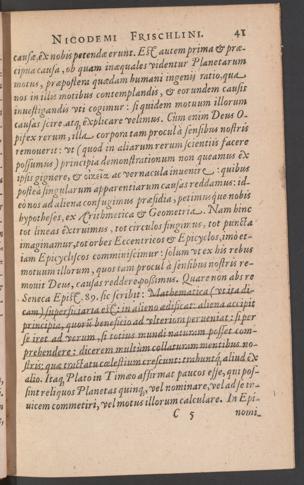 NICODEMI FRISCHLINI. 41
causæ, ex nobis petendæ erunt. Est autem prima & præ-
cipua causa, ob quam inæquales videntur Planetarum
motus, præpostera quædam humani ingenij ratio, qua
nos in illis motibus contemplandis, & eorundem causis
inuestigandis vti cogimur: siquidem motuum illorum
causas scire atq, explicare velimus. Cum enim Deus O-
pifex rerum, illa corpora tam procul à sensibus nostris
remouerit: vt (quod in aliarum rerum scientijs facere
possumus) principia demonstrationum non queamus ex
ipsis gignere, & ac vernacula inuenire: quibus
postea singularum apparentiarum causas reddamus: id-
eò nos ad aliena confugimus præsidia, petimusque nobis
hypotheses, ex Arithmetica & Geometria. Nam hinc
tot lineas extruimus, tot circulos fingimus, tot puncta
imaginamur, tot orbes Eccentricos & Epicyclos, imò et-
iam Epicyclicos comminiscimur: solum vt ex his rebus
motuum illorum, quos tam procul à sensibus nostris re-
mouit Deus, causas reddere possimus. Quare non abs re
Seneca Epist. 89. sic scribit: Mathematica (vt ita di-
cam) superficiaria est: in alieno ædificat: aliena accipit
principia, quorũ beneficio ad vlteriora perueniat: si per
se iret ad verum, si totius mundi naturam posset com-
prehendere: dicerem multùm collaturam mentibus no-
stris: quæ tractatu cœlestium crescunt: trahuntq́ aliud ex
alio. Itaq́, Plato in Timæo affirmat paucos esse, qui pos-
sint reliquos Planetas quinq́, vel nominare, vel ad se in-
uicem commetiri, vel motus illorum calculare. In Epi-
C 5 nomi-